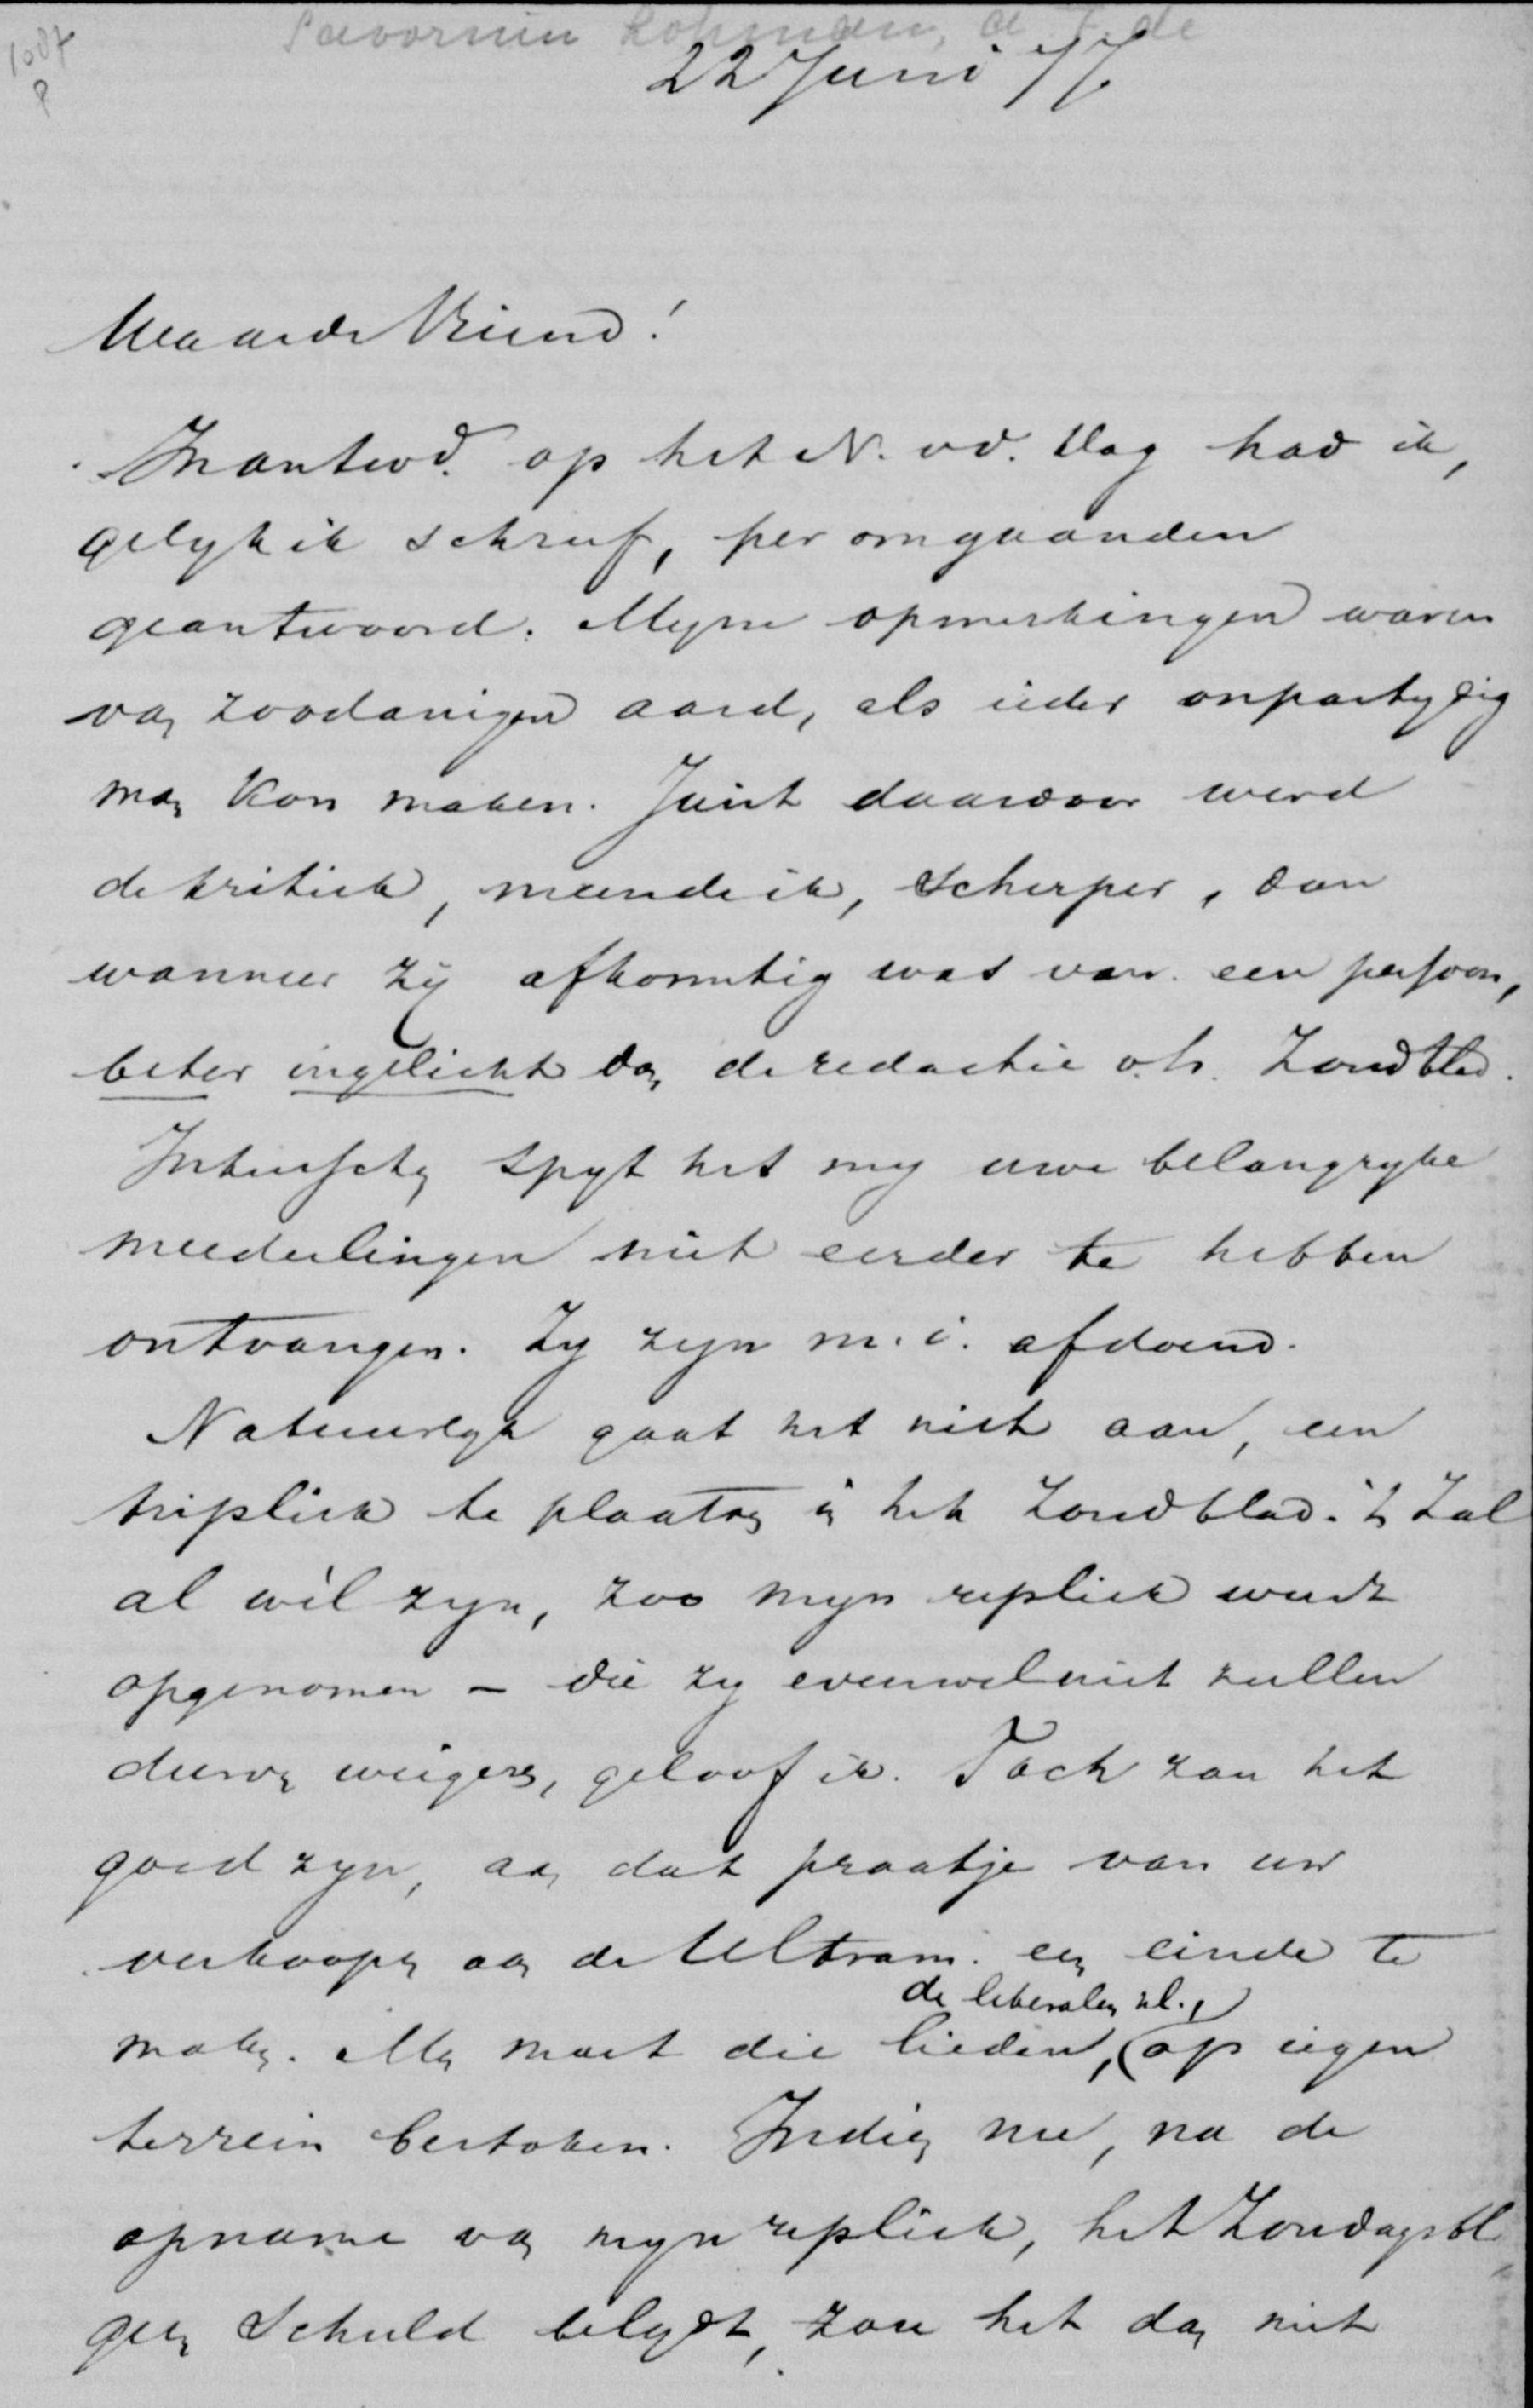 1087
Savornin Lohman, A. F. de
22 Juni 77.
Waarde Vriend!
In antwd. op het N. v d. Dag had ik,
gelyk ik schreef, per omgaanden
geantwoord. Myne opmerkingen waren
van zoodanigen aard, als ieder onpartydig
man kon maken. Juist daardoor werd
de kritiek, meende ik, scherper, dan
wanneer zij afkomstig was van een persoon,
beter ingelicht dan de redactie v.h. Zondbld.
Intusschen spyt het my uwe belangryke
meedeelingen niet eerder te hebben
ontvangen. Zy zyn m.i. afdoend.
Natuurlyk gaat het niet aan, een
tripliek te plaatsen in het Zondblad. 't Zal
al wèl zyn, zoo myn repliek wordt
opgenomen - die zy evenwel niet zullen
durven weigeren, geloof ik. Toch zou het
goed zyn, aan dat praatje van uw
verkoopen aan de Ultram. een einde te
de liberalen nl.,
maken. Men moet die lieden, op eigen
terrein bestoken. Indien nu, na de
opname van myn repliek, het Zondagsbl.
geen schuld belydt, zou het dan niet